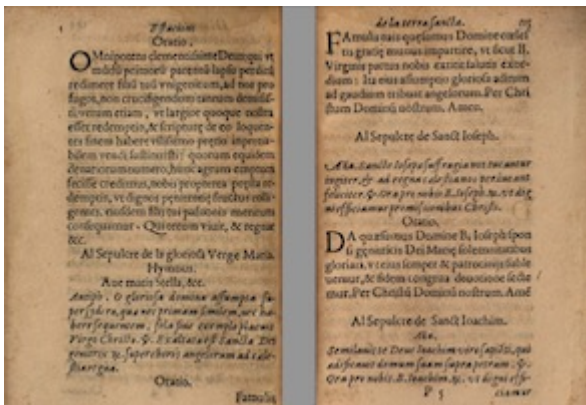 Oratio.
OMnipotens clementissime Deus, qui vt
mūdū primorū parentū lapsu perditū
redimere filiū tuū vnigenitum, ad nos pro
fugos, non crucifigendum tantum
verum etiam, vt largior quoque nostra
esset redemptio, & scripturę de eo loquen-
tes finem habere vilissimo pretio
quorum equidem
denariorum numero, hunc agrum emptum
fecisse credimus, nobis propterea
demptis, vt dignos pęnitentię fructus colli-
gentes, eiusdem filij tui passionis meritum
consequamur. Qui tecum viuit, & regnat
&c.
Al Sepulcre de la gloriosa Verge Maria.
Hymnus.
Aue maris Stella, &c.
Antiph. O gloriosa domina assumpta su-
per sydera, quæ nec primam similem, nec ha-
bere sequentem, sola sine exemplo placuisti
Virgo Christo. ℣. Exaltata est sancta Dei
genitrix ℟. super choros angelorum ad cæle-
stia regna.
Oratio.
Famulis
de la terra sancta.
FAmulis tuis quęsumus Domine cœles
tis gratię munus impartire, vt sicut B.
Virginis partus nobis extitit salutis exor-
dium: Ita eius assumptio gloriosa aditum
ad gaudium tribuat angelorum. Per Chri
stum Dominū nostrum. Amen.
Al Sepulcre de Sanct Ioseph.
Aña. Sancte Ioseph suffragia nos tueantur
iugiter, & ad regna cælestia nos perducant
feliciter. ℣. Ora pro nobis B. Ioseph ℟. vt dig
ni efficiamur promissionibus Christi.
Oratio.
DA quæsumus Domine B. Ioseph spon
si genitricis Dei Marię solemnitatibus
gloriari, vt eius semper & patrocinijs suble
uemur, & fidem congrua deuotione secte
mur. Per Christū Dominū nostrum. Amē
Al Sepulcre de Sanct Ioachim.
Aña.
Similauit te Deus Ioachim viro sapiēti, qui
ædificauit domum suam supra petram. ℣.
Ora pro nobis B. Ioachim. ℟. vt digni effi-
P 5 ciamur